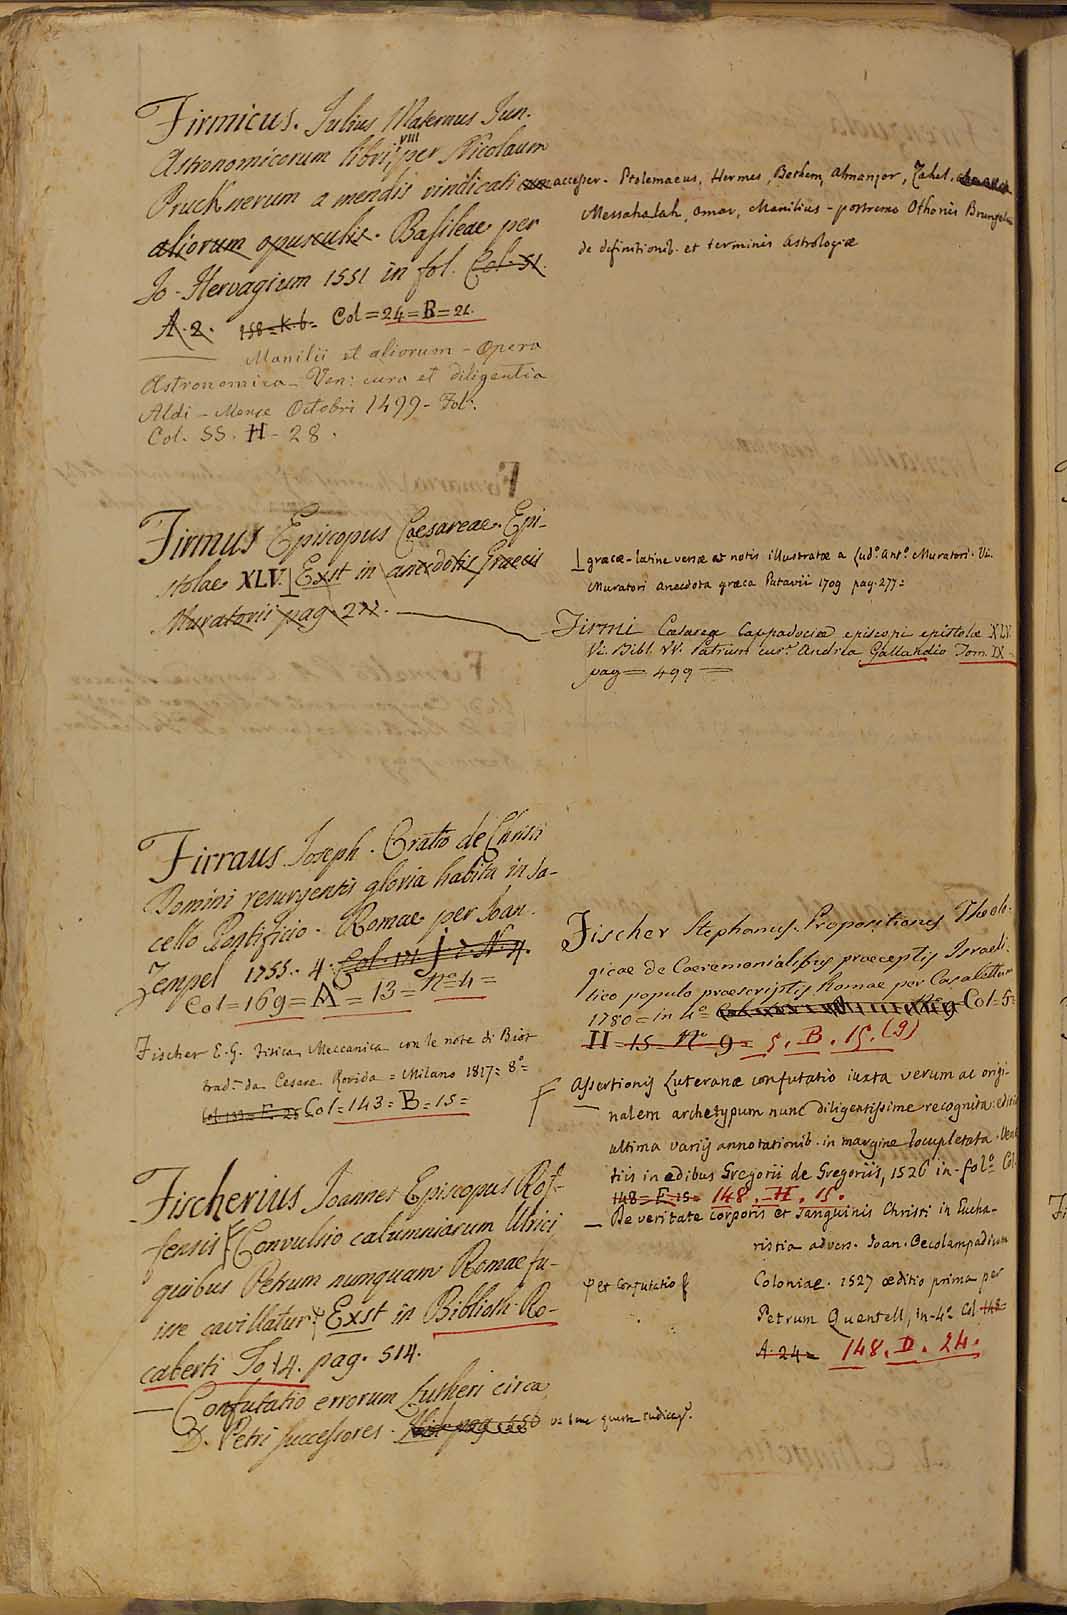 Firmicus. Julius Maternus Jun.
Astronomicorum libri VIII per Nicolaum
Pruckherum a mendis vindicati cum
aliorum opusculis. Basileae per
Jo. Hervagium 1551 in fol. Col. 51.
A. 2. 158=K.6= Col=24=B=22.
Manilii et aliorum - Opera
Astronomica - Ven: cura et diligentia
Aldi - Mense Octobri 1499 - Fol.
Col. 55. H - 28.
accesser. Ptolemaeus, Hermes, Bethem, Almansor, Zahel,
Messahalah, Omar, Manilius - postremo Othonis
de definitionib. et terminis Astrologiæ
Firmus Episcopus Caesareae. Epi-
stolae XLV. Exst in anecdotis Graecis
Muratorii pag. 277.
græce-latine versæ et notis illustratæ a Lud.º Ant.º Muratori. Vi.
Muratori anecdota græca Patavii 1709 pag. 277=
Firmi Cæsareæ Cappadociæ episcopi epistolæ XLV.
Vi. Bibl. VV. Patrum cur.ª Andrea Gallandio Tom. IX
pag = 499 =
Firraus Joseph. Oratio de Christi
Domini resurgentis gloria habita in Sa-
cello Pontificio. Romae per Joan.
Zempel 1755. 4.
Col=169=A=13=nº=4=
Fischer E. G. Fisica Meccanica con le note di Biot
trad.ne da Cesare Rovida = Milano 1817= 8º=
Col=143=B=15=
Fischer Stephanus. Propositiones Theolo-
gicae de Caeremonialibus praeceptis Israeli-
tico populo praescriptis Romae per Casaletti
1780= in 4º= Col=5=
H=15= Nº 9= 5. B. 15. (9)
Assertionis Luteranæ confutatio iuxta verum ac origi-
nalem archetypum nunc diligentissime recognita: editio
ultima variis annotationib. in margine locupletata. Vene
tiis in ædibus Gregorii de Gregoriis, 1526 in-folº Col
148=E.15= 148. H. 15.
Fischerius Joannes Episcopus Rof-
fensis Convulsio calumniarum Ulrici
quibus Petrum numquam Romae fu-
isse cavillatur. Exst in Biblioth. Ro-
caberti To 14. pag. 514.
— Confutatio errorum Lutheri circa
D. Petri successores.
— De veritate corporis et sanguinis Christi in Eucha-
ristia advers. Joan. Oecolampadium
Coloniae. 1527 æditio prima per
Petrum Quentell, in-4º Col 148=
A. 24= 148. D. 24.
et Confutatio